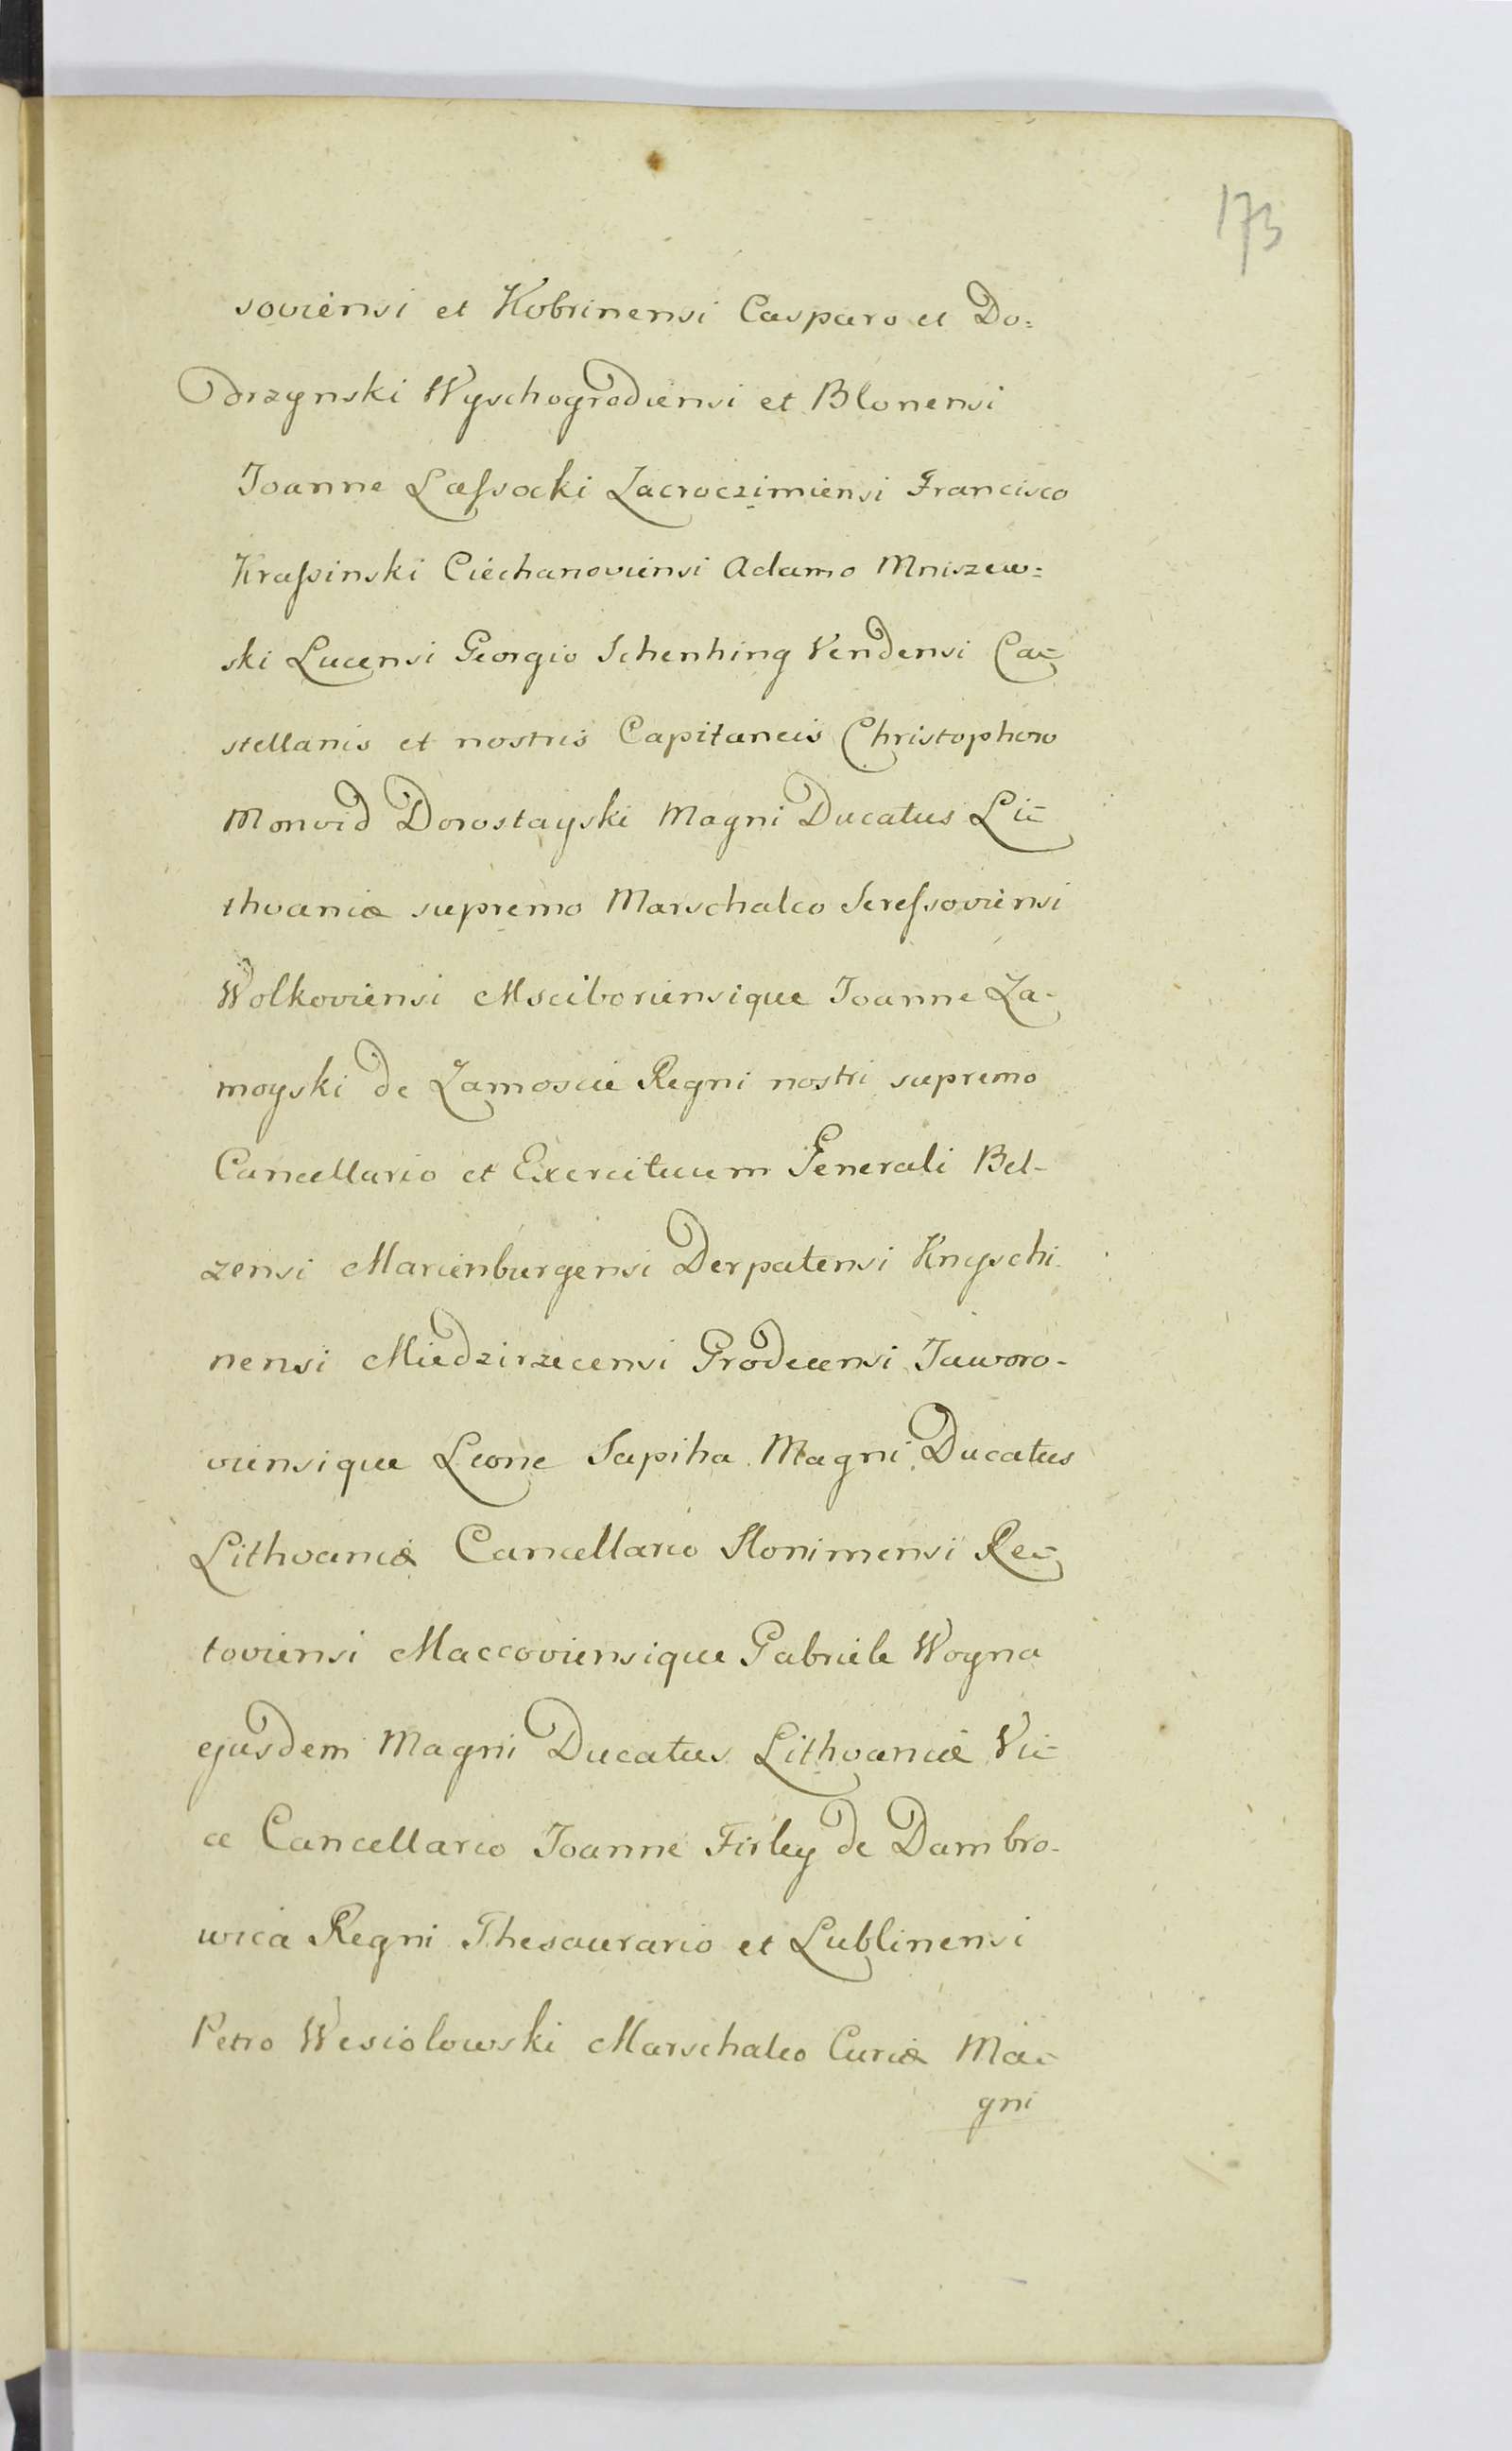 173
soviensi et Kobrinensi Casparo et Do=
Odrzynski Wyschogrodiensi et Blonensi
Joanne Lassocki Zacroczimiensi Francisco
Krassinski Ciechanoviensi Adamo Mniszew=
ski Lucensi Georgio Schenhing Vendensi Ca=
stellanis et nostris Capitaneis Christophoro
Monvid Dorostayski Magni Ducatus Li=
thvaniæ supremo Marschalco Seressoviensi
Wolkoviensi Msciboriensique Joanne Za-
moyski de Zamoscie Regni nostri supremo
Cancellario et Exercituum Generali Bel-
zensi Marienburgensi Derpatensi Knyschi-
nensi Miedzirzecensi Grodecensi Jaworo-
viensique Leone Sapiha Magni Ducatus
Lithvaniæ Cancellario Slonimensi Re=
toviensi Maccoviensique Gabriele Woyna
ejusdem Magni Ducatus Lithvaniæ Vi=
ce Cancellario Joanne Firley de Dambro-
wica Regni Thesaurario et Lublinensi
Petro Wesiolowski Marschalco Curiæ Ma=
gni